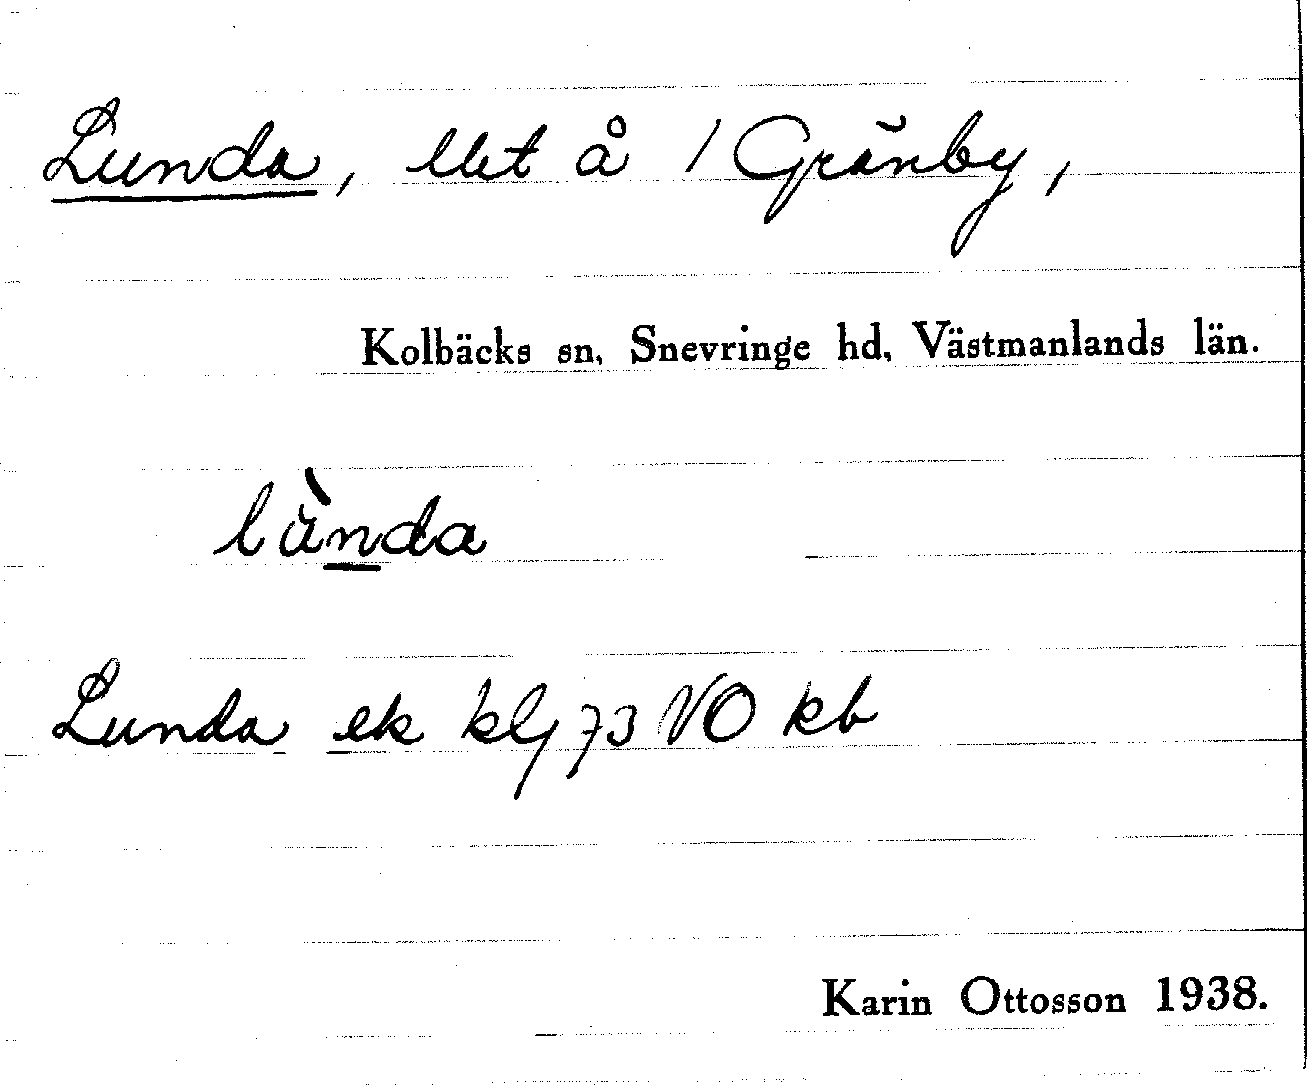 Lunda, lht å 1 Gränby,
Kolbäcks sn, Snevringe hd, Västmanlands län.
lùnda
Lunda ek klj 73 NO kb
Karin Ottosson 1938.